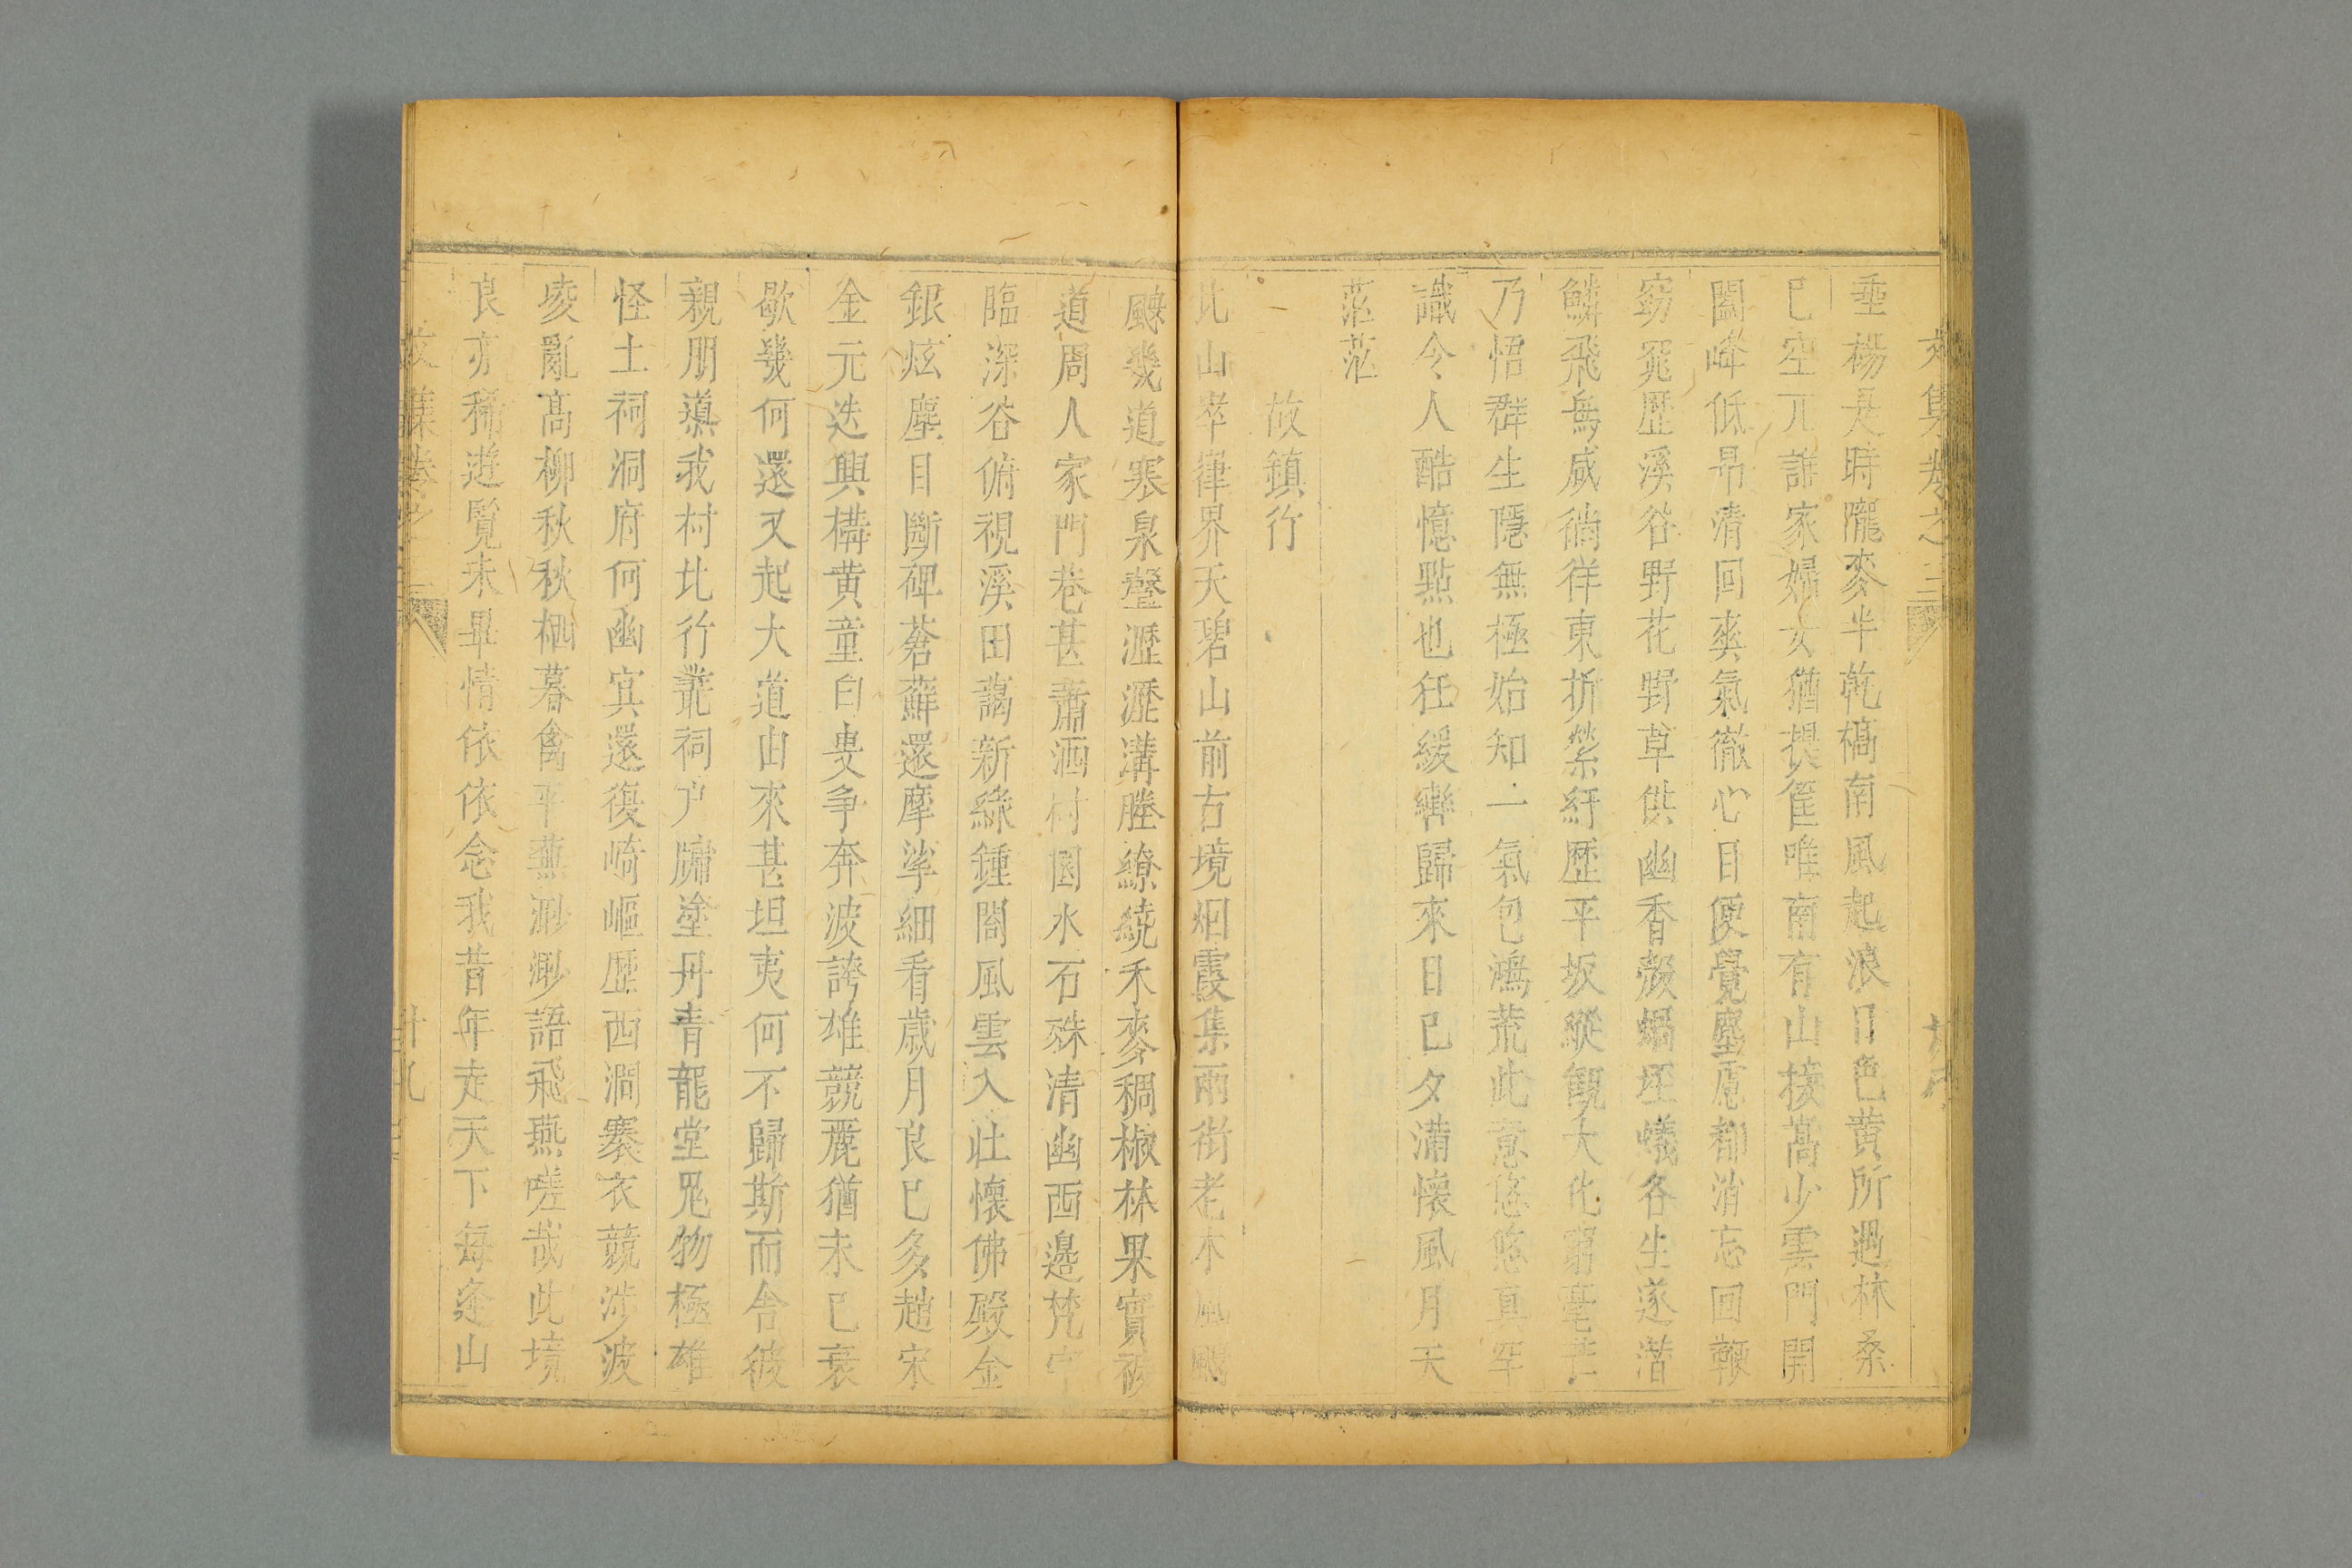 文集卷之三
垂楊是時隴麥半乾槁南風起浪日色黃所遇林桑
已空兀誰家婦女猶提筐唯南有山接高少雲門開
闔峰低昻清回爽氣徹心目便覺塵慮都消忘回鞭
窈窕歷溪谷野花野草供幽香殼蝸垤蟻各生遂潛
鱗飛鳥咸徜徉東折縈紆歷平坂縱觀大化窮毫芒
乃悟群生隱無極始知一氣包鴻荒此意悠悠真罕
識今人酷憶點也狂緩轡歸來日已夕滿懷風月天
茫茫
故鎮行
北山崒嵂界天碧山前古境烟霞集兩街老木風颼
飈幾道寒泉聲瀝瀝溝塍繚繞禾麥稠椒林果實被
道周人家門巷甚蕭洒村園水石殊清幽西邊梵宇
臨深谷俯視溪田藹新綠鍾閣風雲入壯懷佛殿金
銀炫塵目斷碑蒼蘚還摩挲細看歲月良已多趙宋
金元迭興構黃童白叟爭奔波誇雄競麗猶未已衰
歇幾何還又起大道由來甚坦夷何不歸斯而舍彼
親朋導我村北行叢祠戶牖塗丹青龍堂鬼物極雄
怪土祠洞府何幽寘還復崎嶇歷西澗褰衣競涉波
凌亂高柳秋秋栖暮禽平蕪渺渺語飛燕嗟哉此境
良亦稀遊覽未畢情依依念我昔年走天下每逢山
文集卷之三
廿九